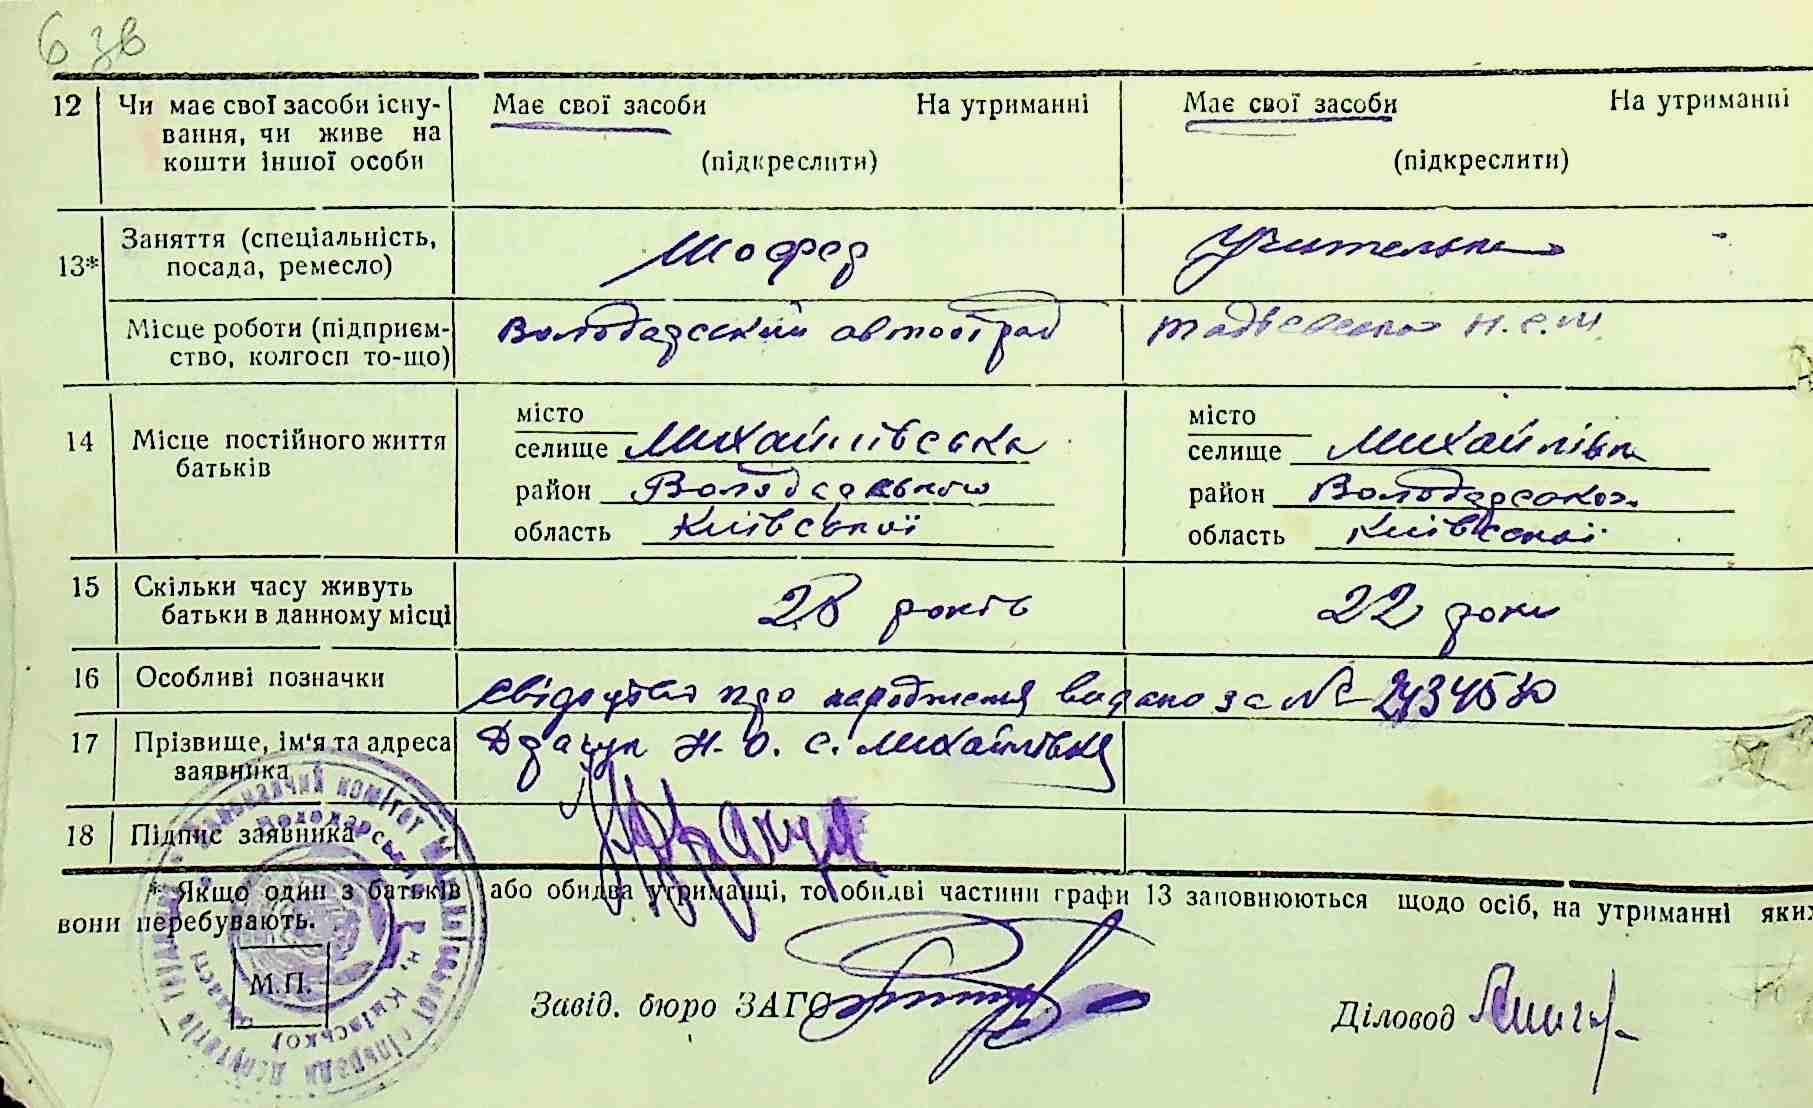 6 зв
12 Чи має свої засоби існу- Має свої засоби На утриманні Має свої засоби На утриманні
вання, чи живе на
кошти іншої особи (підкреслити) (підкреслити)
13* Заняття (спеціальність, Шофер Учителька
посада, ремесло)
Місце роботи (підприєм- Володарський н.с.ш.
ство, колгосп то-що)
місто місто
14 Місце постійного життя селище Михайлівська селище Михайлівка
батьків район Володарського район Володарського
область Київської область Київської
15 Скільки часу живуть 28 років 22 роки
батьки в данному місці
16 Особливі позначки свідоцтво про народження видано за №
17 Прізвище, ім'я та адреса Драчук Н. О. с. Михайлівка
заявника
18 Підпис заявника Драчук
* Якщо один з батьків або обидва утриманці, то обидві частини графи 13 заповнюються щодо осіб, на утриманні яких
вони перебувають.
М.П.
Завід. бюро ЗАГС Діловод
Виконавчий комітет Михайлівської сільради депутатів
Володарський р-н, Київської області